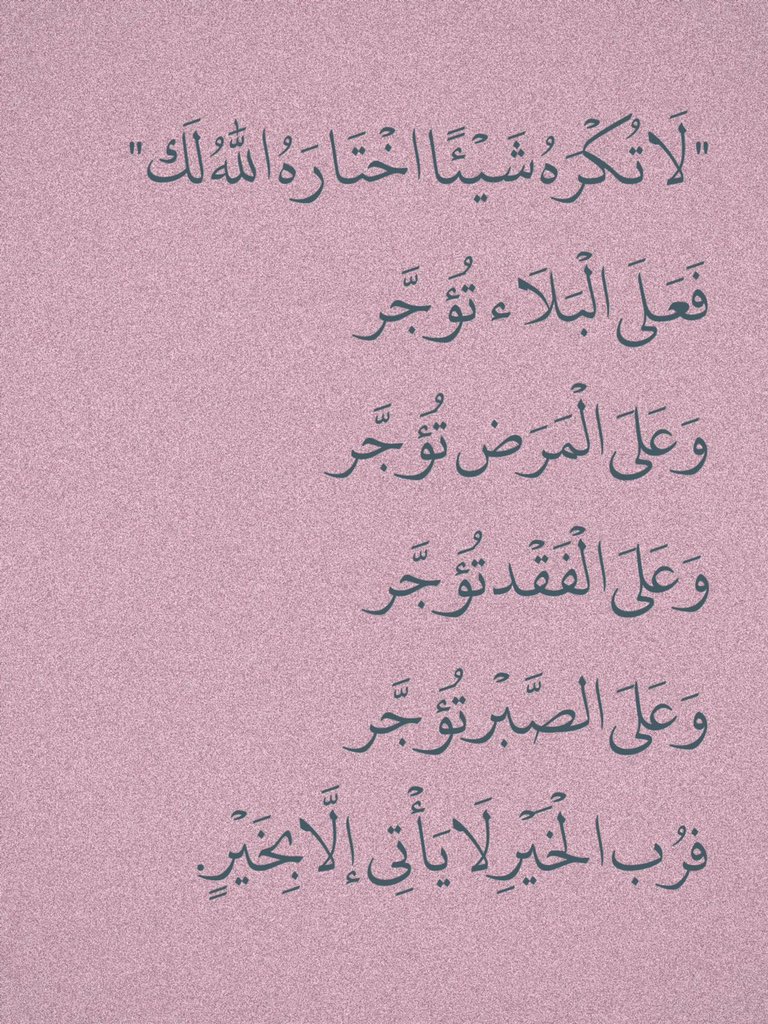 "لَا تُكْرَهُ شَيْئًا اخْتَارَهُ اللّٰهُ لَكَ"
فَعَلَى الْبَلَاء تُؤَجَّر
وَعَلَى الْمَرَض تُؤَجَّر
وَعَلَى الْفَقْد تُؤَجَّر
وَعَلَى الصَّبْر تُؤَجَّر
فرُب الْخَيْرِ لَا يَأْتِى إلَّا بِخَيْرٍ.